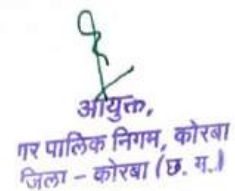 आयुक्त,
गर पालिक निगम, कोरबा
जिला - कोरबा (छ. ग.)